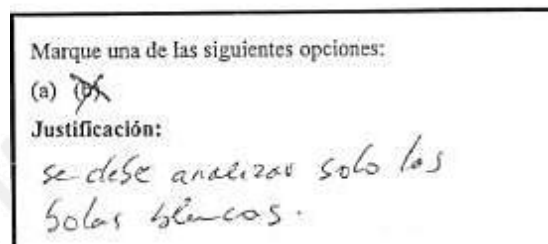 Marque una de las siguientes opciones:
(a) (b)
Justificación:
se debe analizar solo las
bolas blancas.